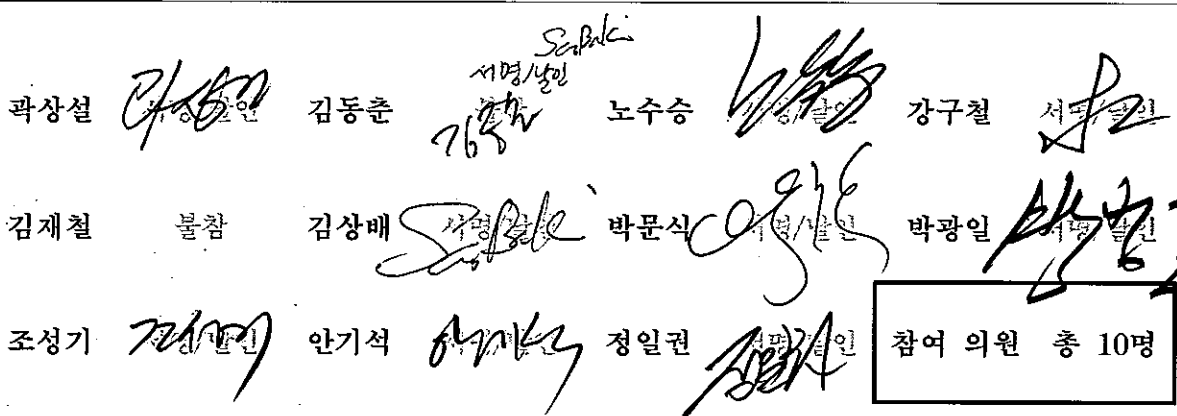 곽상설 서명/날인 김동춘 서명/날인 노수승 서명/날인 강구철 서명/날인
김재철 불참 김상배 서명/날인 박문식 서명/날인 박광일 서명/날인
조성기 서명/날인 안기석 정일권 서명/날인 참여 의원 총 10명